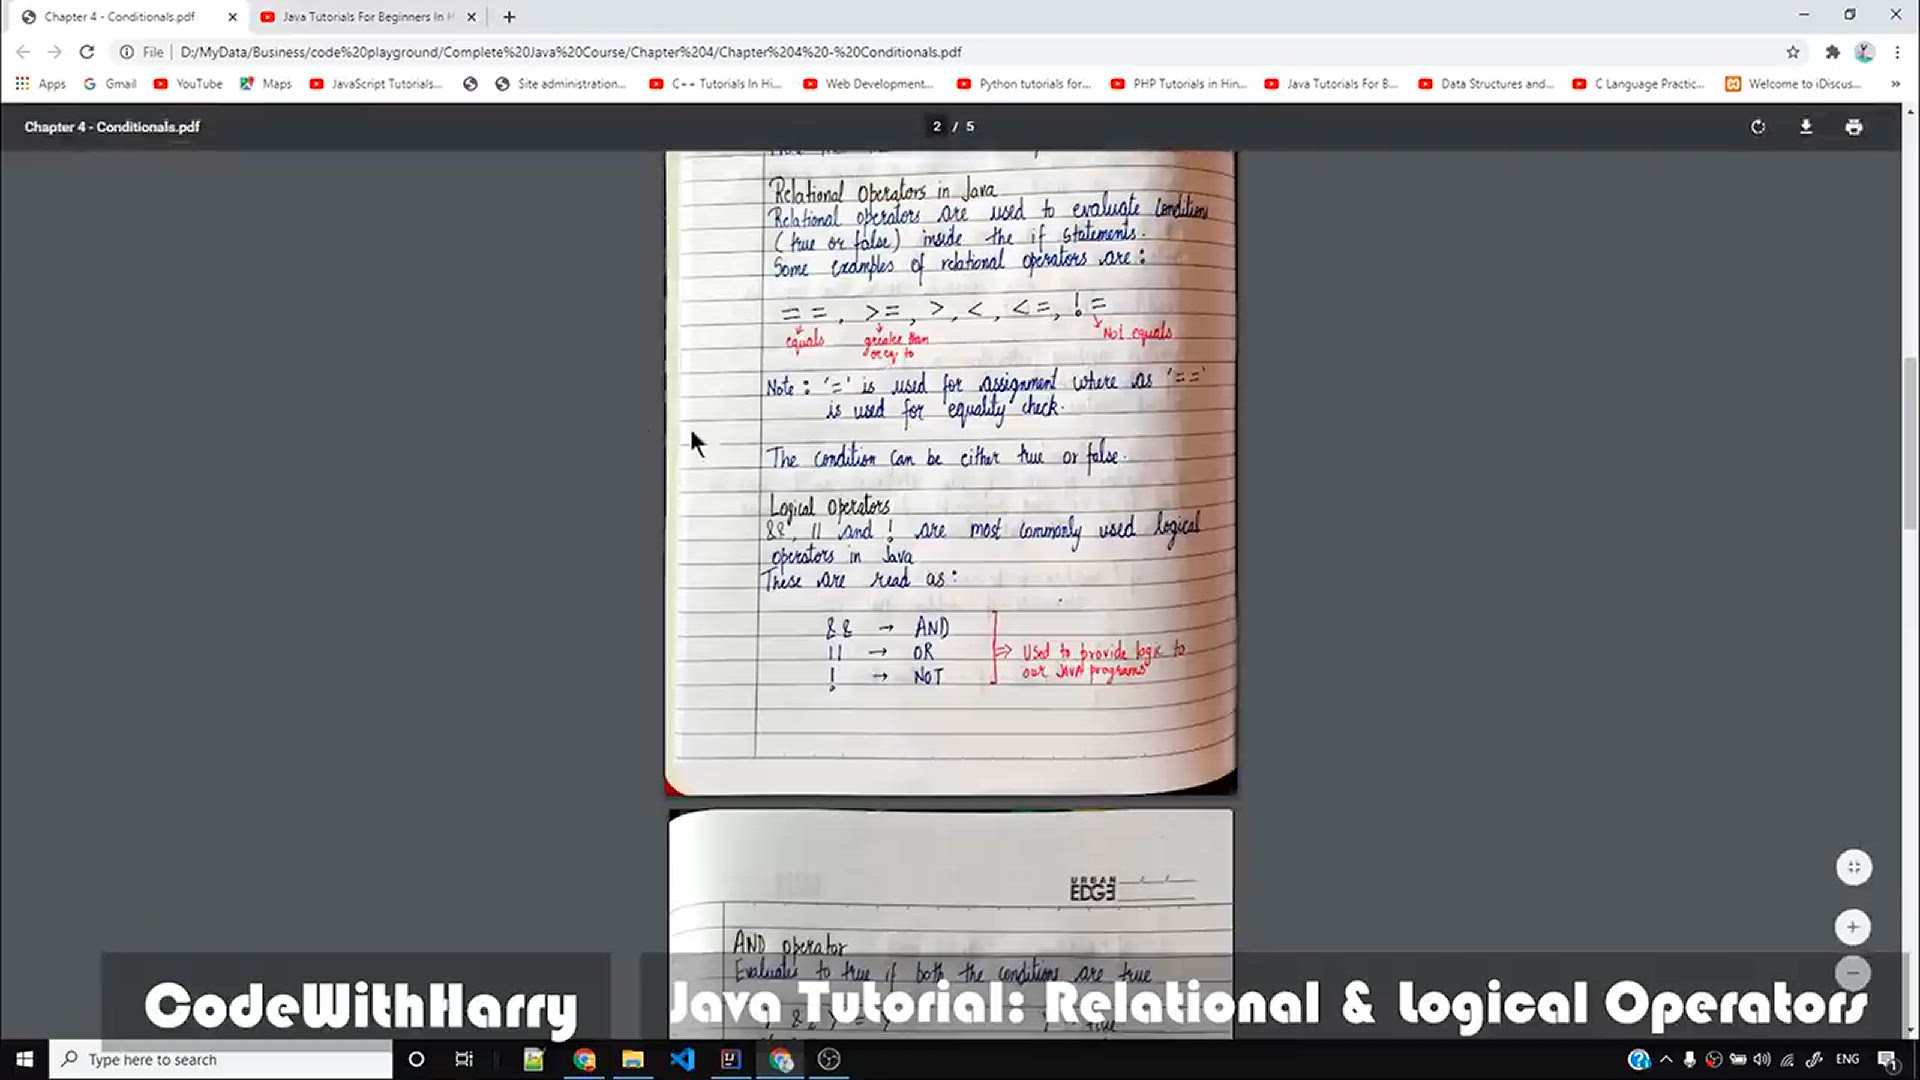 Chapter 4 - Conditionals.pdf
Java Tutorials For Beginners In H
File
D:/MyData/Business/code%20playground/Complete%20Java%20Course/Chapter%204/Chapter%204%20-%20Conditionals.pdf
Apps
Gmail
YouTube
Maps
JavaScript Tutorials...
Site administration...
C++ Tutorials In Hi...
Web Development...
Python tutorials for...
PHP Tutorials in Hin...
Java Tutorials For B...
Data Structures and...
C Language Practic...
Welcome to iDiscus...
Chapter 4 - Conditionals.pdf
2 / 5
Relational Operators in Java
Relational operators are used to evaluate conditions
(true or false) inside the if statements.
Some examples of relational operators are:
==, >=, >, <, <=, !=
equals
greater than
or eq to
Not equals
Note: '=' is used for assignment where as '=='
is used for equality check.
The condition can be either true or false.
Logical Operators
&&, || and ! are most commonly used logical
operators in Java
These are read as:
&& → AND
|| → OR
! → NOT
⇒ Used to provide logic to
our JAVA programs
URBAN
EDGE
AND operator
Evaluates to true if both the conditions are true
CodeWithHarry
Java Tutorial: Relational & Logical Operators
Type here to search
ENG